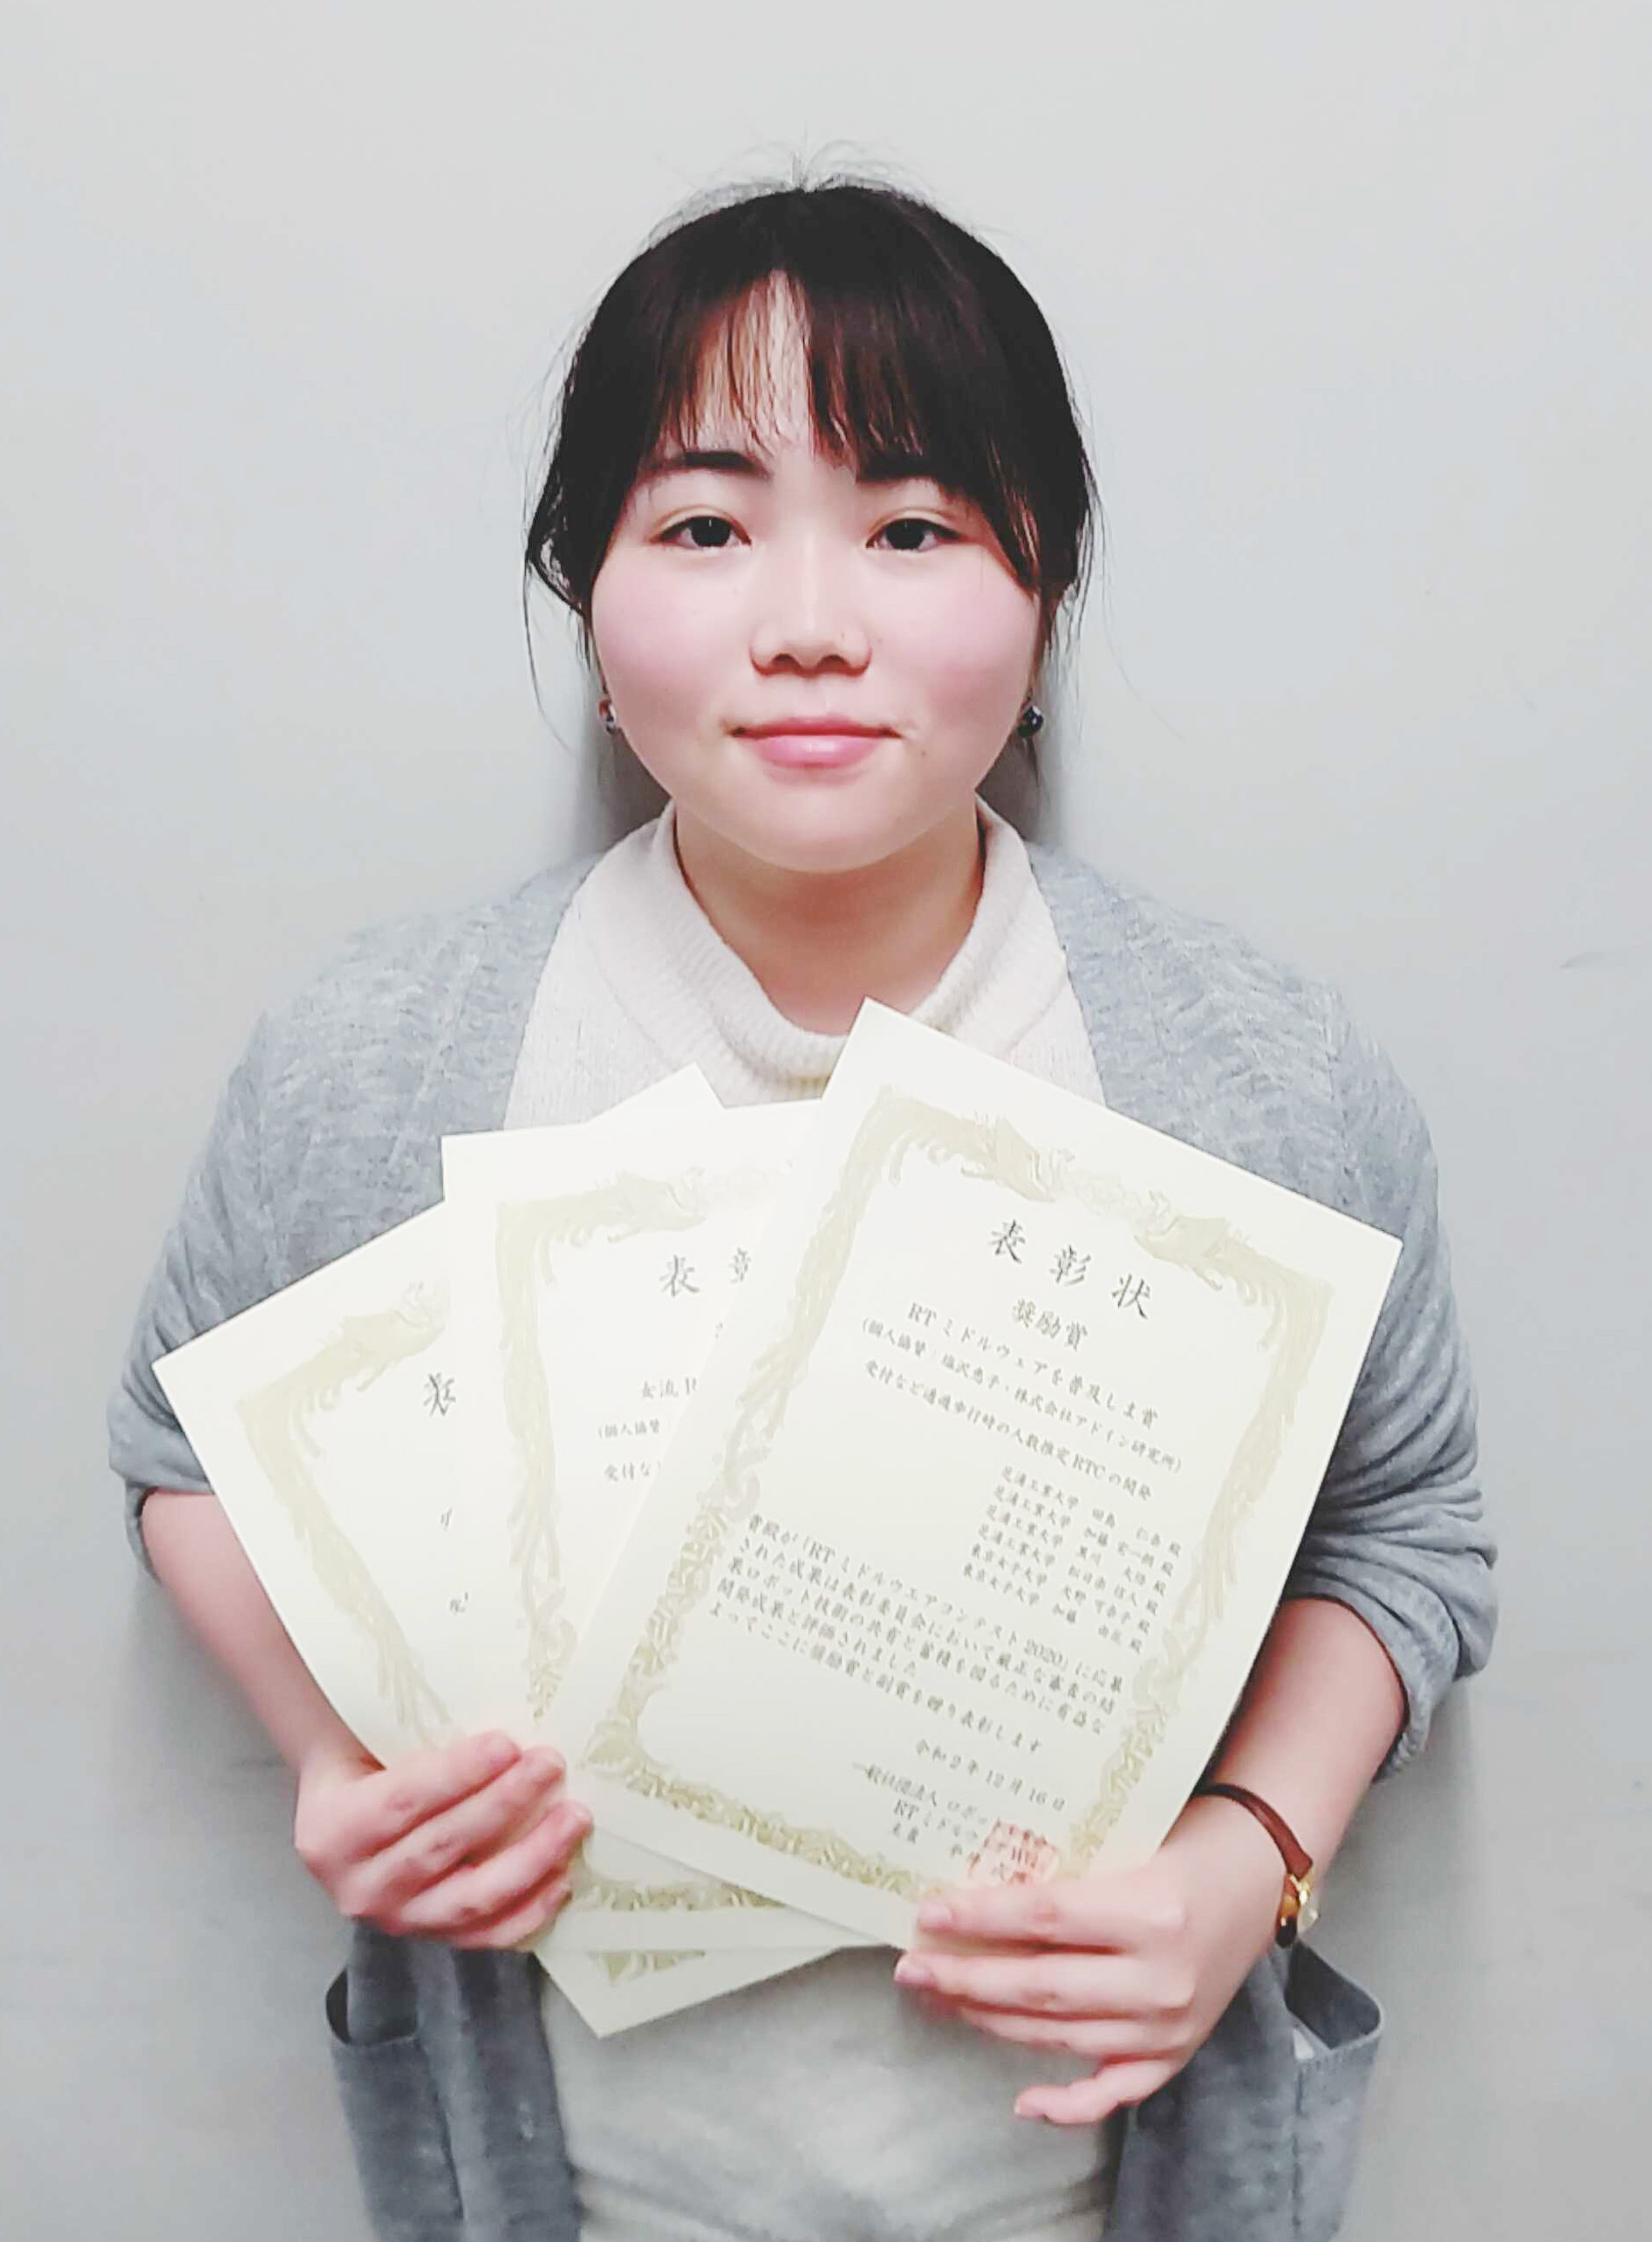 表
表 彰
女流 R
(個人協賛
受付な
表 彰 状
奨励賞
RT ミドルウェアを普及しま賞
(個人協賛：塩沢恵子・株式会社アドイン研究所)
受付など通過歩行時の人数推定 RTC の開発
芝浦工業大学 田島 仁奈 殿
芝浦工業大学 加藤 宏一朗 殿
芝浦工業大学 黒川 大陽 殿
芝浦工業大学 松日楽 信人 殿
東京女子大学 大野 可奈子 殿
東京女子大学 加藤 由花 殿
貴殿が「RT ミドルウエアコンテスト 2020」に応募
された成果は表彰委員会において厳正な審査の結
果ロボット技術の共有と蓄積を図るために有益な
開発成果と評価されました
よってここに奨励賞と副賞を贈り表彰します
令和2年 12月 16日
一般社団法人 ロボッ
RT ミドルウ
主査